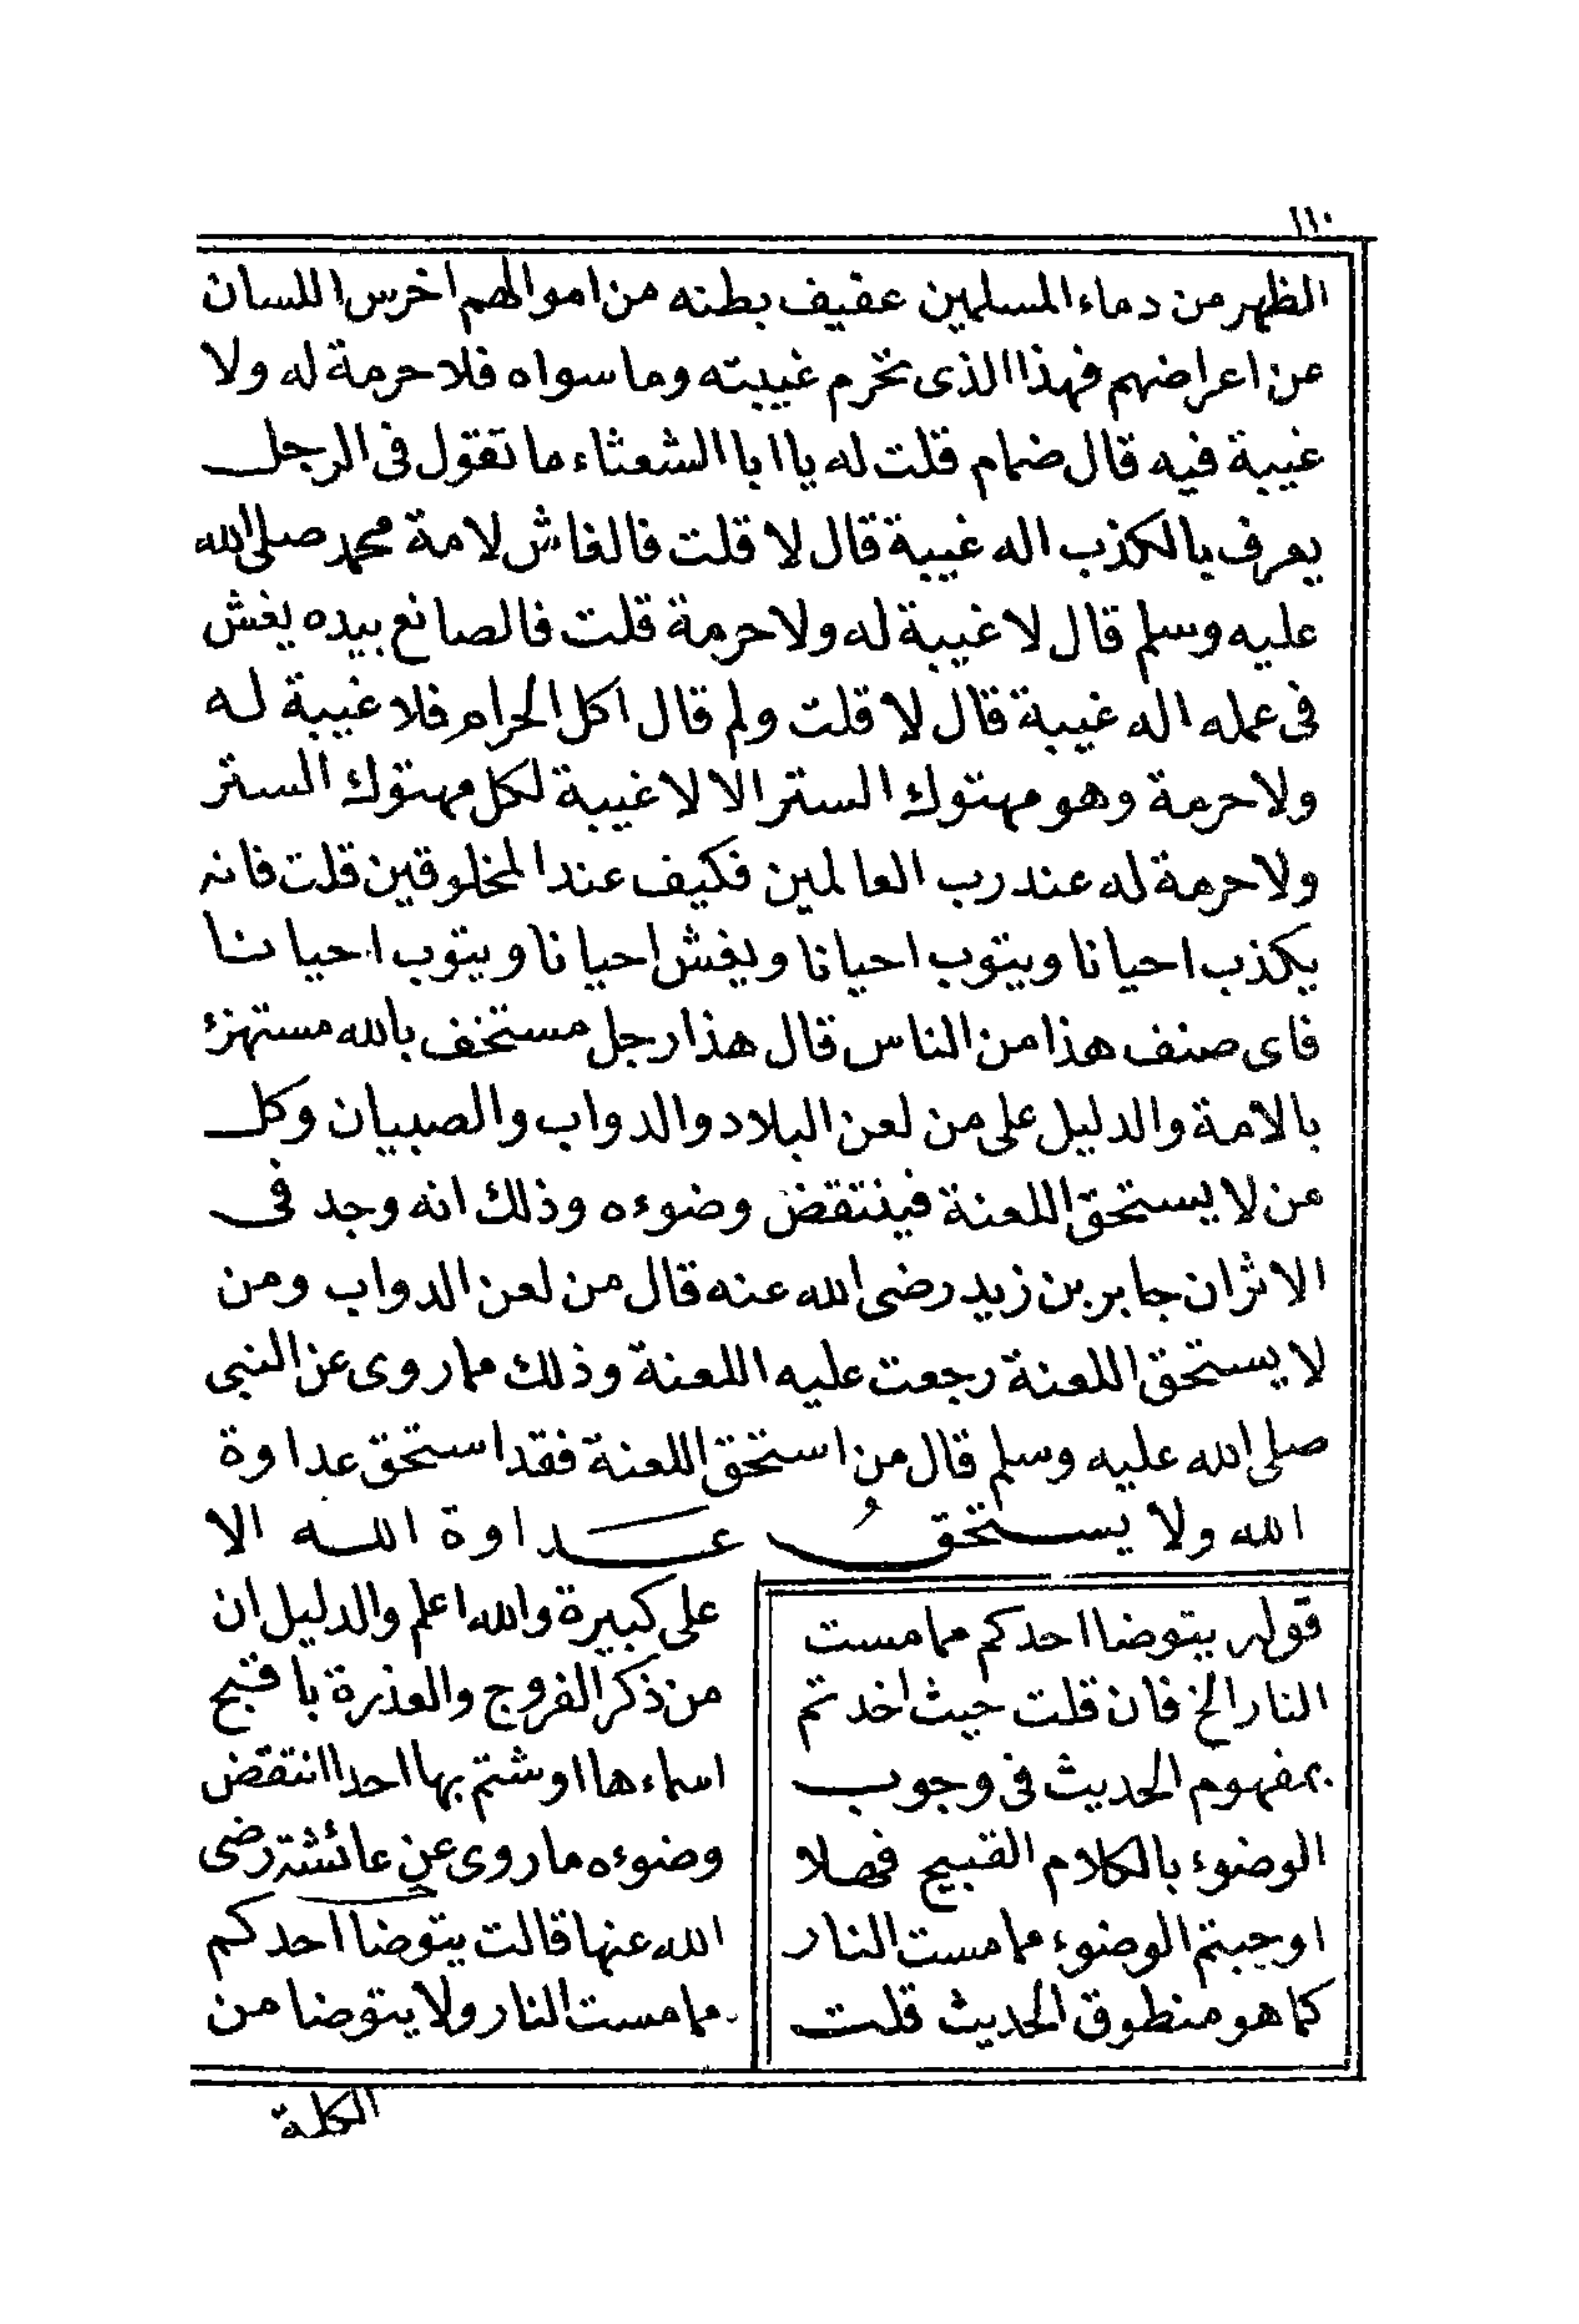 ١١٠
الظهر من دماء المسلمين عفيف بطنه من اموالهم اخرس اللسان
عن اعراضهم فهذا الذى تحرم غيبته وما سواه فلا حرمة له ولا
غيبة فيه قال ضمام قلت له يا ابا الشعثاء ما تقول فى الرجل
يعرف بالكذب اله غيبة قال لا قلت فالغاش لامة محمد صلى الله
عليه وسلم قال لا غيبة له ولا حرمة قلت فالصانع بيده يغش
فى عمله اله غيبة قال لا قلت ولم قال اكل الحرام فلا غيبة له
ولا حرمة وهو مهتوك الستر الا لا غيبة لكل مهتوك الستر
ولا حرمة له عند رب العالمين فكيف عند المخلوقين قلت فانه
يكذب احيانا ويتوب احيانا ويغش احيانا ويتوب احيانا
فاى صنف هذا من الناس قال هذا رجل مستخف بالله مستهزئ
بالامة والدليل على من لعن البلاد والدواب والصبيان وكل
من لا يستحق اللعنة فينتقض وضوءه وذلك انه وجد فى
الاثر ان جابر بن زيد رضى الله عنه قال من لعن الدواب ومن
لا يستحق اللعنة رجعت عليه اللعنة وذلك مما روى عن النبى
صلى الله عليه وسلم قال من استحق اللعنة فقد استحق عداوة
الله ولا يستحقُ عداوة الله الا
على كبيرة والله اعلم والدليل ان
من ذكر الفروج والعذرة باقبح
اسماءها او شتم بها احدا انتقض
وضوءه ما روى عن عائشة رضى
الله عنها قالت يتوضا احدكم
مما مست النار ولا يتوضا من
قوله يتوضا احدكم مما مست
النار الخ فان قلت حيث اخدتم
بمفهوم الحديث فى وجوب
الوضوء بالكلام القبيح فهلا
اوجبتم الوضوء مما مست النار
كما هو منطوق الحديث قلت
الكلمة